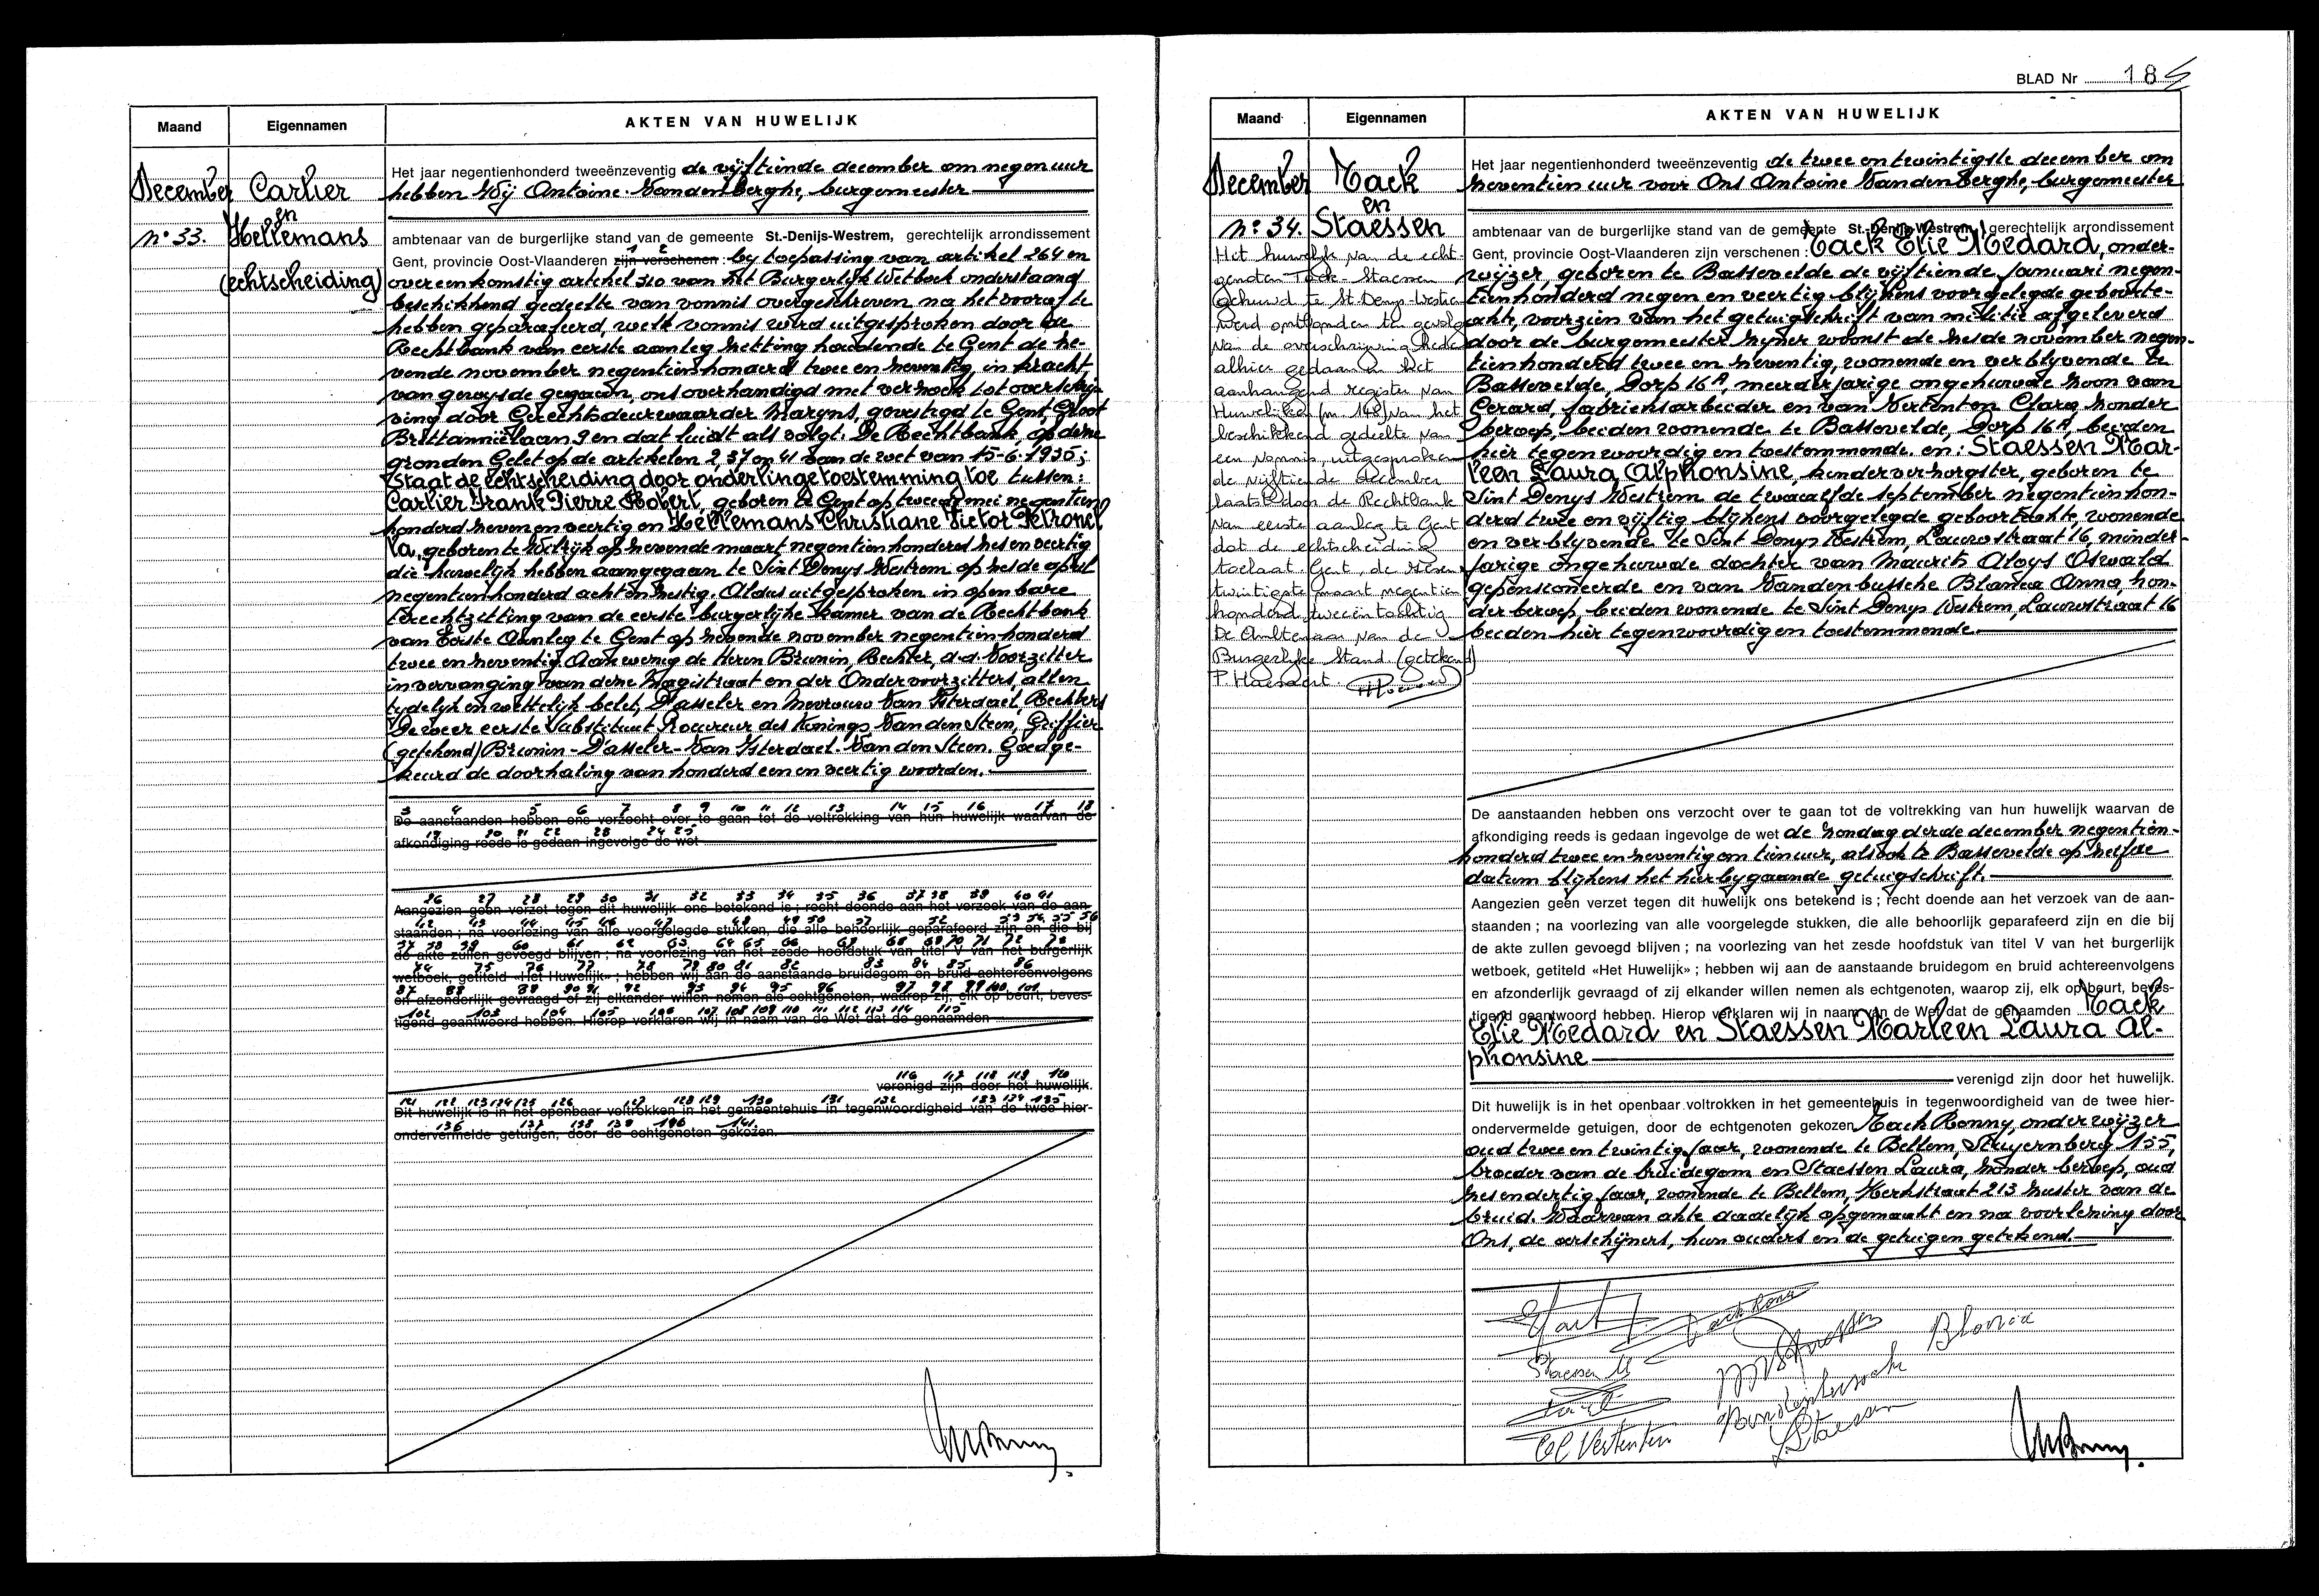 Maand
Eigennamen
AKTEN VAN HUWELIJK
December
n° 33.
Carlier
en
Hellemans
(echtscheiding)
Het jaar negentienhonderd tweeënzeventig de vijftiende december om negen uur
hebben Wij Antoine Vanden Berghe, burgemeester
ambtenaar van de burgerlijke stand van de gemeente St.-Denijs-Westrem, gerechtelijk arrondissement
1 2
Gent, provincie Oost-Vlaanderen zijn verschenen : by toepassing van artikel 264 en
overeenkomstig artikel 310 van het Burgerlijk Wetboek onderstaand
beschikkend gedeelte van vonnis overgeschreven na het vooraf te
hebben geparafeerd, welk vonnis werd uitgesproken door de
Rechtbank van eerste aanleg zetting houdende te Gent de ze-
vende november negentienhonderd twee en zeventig, in kracht
van gewysde gegaan, ons overhandigd met verzoek tot overschrij-
ving door Gerechtsdeurwaarder Maryns, gevestigd te Gent, Groot
Brittanniëlaan 9 en dat luidt als volgt: De Rechtbank, op deze
gronden Gelet op de artikelen 2, 37 en 41 van de wet van 15-6-1935;
Staat de echtscheiding door onderlinge toestemming toe tussen:
Carlier Frank Pierre Robert, geboren te Gent op tweede mei negentien
honderd zeven en veertig en Hellemans Christiane Victor Petronel
la, geboren te Wilrijk op zevende maart negentienhonderd zes en veertig
die huwelijk hebben aangegaan te Sint Denys Westrem op zesde april
negentienhonderd acht en zestig. Aldus uitgesproken in openbare
terechtzitting van de eerste burgerlijke kamer van de Rechtbank
van Eerste Aanleg te Gent op zevende november negentienhonderd
twee en zeventig. Aanwezig de Heren Brunin, Rechter, d.d. Voorzitter
in vervanging van deze Magistraat en der Ondervoorzitters, allen
tydelijk en wettelijk belet, D'asseler en Mevrouw Van Ysterdael, Rechters
De weer eerste Substituut Procureur des Konings Van den Steen, Griffier
(getekend) Brunin - D'asseler - Van Ysterdael - Van den Steen. Goedge-
keurd de doorhaling van honderd een en veertig woorden.
3 4 5 6 7 8 9 10 11 12 13 14 15 16 17 18
De aanstaanden hebben ons verzocht over te gaan tot de voltrekking van hun huwelijk waarvan de
19 20 21 22 23 24 25
afkondiging reeds is gedaan ingevolge de wet
26 27 28 29 30 31 32 33 34 35 36 37 38 39 40 41
Aangezien geen verzet tegen dit huwelijk ons betekend is ; recht doende aan het verzoek van de aan-
42 43 44 45 46 47 48 49 50 51 52 53 54 55 56
staanden ; na voorlezing van alle voorgelegde stukken, die alle behoorlijk geparafeerd zijn en die bij
57 58 59 60 61 62 63 64 65 66 67 68 69 70 71 72 73
de akte zullen gevoegd blijven ; na voorlezing van het zesde hoofdstuk van titel V van het burgerlijk
74 75 76 77 78 79 80 81 82 83 84 85 86
wetboek, getiteld «Het Huwelijk» ; hebben wij aan de aanstaande bruidegom en bruid achtereenvolgens
87 88 89 90 91 92 93 94 95 96 97 98 99 100 101
en afzonderlijk gevraagd of zij elkander willen nemen als echtgenoten, waarop zij, elk op beurt, beves-
102 103 104 105 106 107 108 109 110 111 112 113 114 115
tigend geantwoord hebben. Hierop verklaren wij in naam van de Wet dat de genaamden
116 117 118 119 120
verenigd zijn door het huwelijk.
121 122 123 124 125 126 127 128 129 130 131 132 133 134 135
Dit huwelijk is in het openbaar voltrokken in het gemeentehuis in tegenwoordigheid van de twee hier-
136 137 138 139 140 141
ondervermelde getuigen, door de echtgenoten gekozen.
BLAD Nr 184
Maand
Eigennamen
AKTEN VAN HUWELIJK
December
n° 34.
Tack
en
Staessen
Het huwelijk van de echt-
genoten Tack Staessen
gehuwd te St Denys-Westrem
werd ontbonden ten gevolge
van de overschrijving heden
alhier gedaan in het
aanhangend register van
Huwelijken fn 148 van het
beschikkend gedeelte van
een vonnis, uitgesproken
de vijftiende december
laatst door de Rechtbank
van eerste aanleg te Gent
dat de echtscheiding
toelaat Gent, de
twintigste maart negentien
honderd tweeëntachtig
De Ambtenaar van de
Burgerlijke Stand (getekend)
P. Haenaert
Het jaar negentienhonderd tweeënzeventig de twee en twintigste december om
zeventien uur voor Ons Antoine Vanden Berghe, burgemeester
ambtenaar van de burgerlijke stand van de gemeente St.-Denijs-Westrem, gerechtelijk arrondissement
Gent, provincie Oost-Vlaanderen zijn verschenen : Tack Elie Medard, onder-
wijzer geboren te Bassevelde de vijftiende januari negen-
tienhonderd negen en veertig blijkens voorgelegde geboorte-
akte, voorzien van het getuigschrift van militie afgeleverd
door de burgemeester zyner woonst de zesde november negen-
tienhonderd twee en zeventig, wonende en verblyvende te
Bassevelde, Dorp 16A, meerderjarige ongehuwde zoon van
Gerard, fabrieksarbeider en van Vertenten Clara zonder
beroep, beiden wonende te Bassevelde, Dorp 16A, beiden
hier tegenwoordig en toestemmende. en: Staessen Mar-
leen Laura Alphonsine, kinderverzorgster, geboren te
Sint Denys Westrem de twaalfde september negentienhon-
derd twee en vijftig blijkens voorgelegde geboorteakte, wonende
en verblyvende te Sint Denys Westrem, Lauwstraat 16, minder-
jarige ongehuwde dochter van Maurits Aloys Oswald
gepensioneerde en van Vandenbussche Blanca Anna, zon-
der beroep, beiden wonende te Sint Denys Westrem, Lauwstraat 16
beiden hier tegenwoordig en toestemmende.
De aanstaanden hebben ons verzocht over te gaan tot de voltrekking van hun huwelijk waarvan de
afkondiging reeds is gedaan ingevolge de wet de zondag derde december negentien-
honderd twee en zeventig om tien uur, alsook te Bassevelde op zelfde
datum blijkens het hierbygaande getuigschrift.
Aangezien geen verzet tegen dit huwelijk ons betekend is ; recht doende aan het verzoek van de aan-
staanden ; na voorlezing van alle voorgelegde stukken, die alle behoorlijk geparafeerd zijn en die bij
de akte zullen gevoegd blijven ; na voorlezing van het zesde hoofdstuk van titel V van het burgerlijk
wetboek, getiteld «Het Huwelijk» ; hebben wij aan de aanstaande bruidegom en bruid achtereenvolgens
en afzonderlijk gevraagd of zij elkander willen nemen als echtgenoten, waarop zij, elk op beurt, beves-
tigend geantwoord hebben. Hierop verklaren wij in naam van de Wet dat de genaamden Tack
Elie Medard en Staessen Marleen Laura Al-
phonsine
verenigd zijn door het huwelijk.
Dit huwelijk is in het openbaar voltrokken in het gemeentehuis in tegenwoordigheid van de twee hier-
ondervermelde getuigen, door de echtgenoten gekozen Tack Ronny, onderwijzer
oud twee en twintig jaar, wonende te Bellem, Stuyvernberg 155,
broeder van de bruidegom en Staessen Laura, zonder beroep, oud
zesendertig jaar, wonende te Bellem, Kerkstraat 213 zuster van de
bruid. Waarvan akte dadelijk opgemaakt en na voorlezing door
Ons, de verschijners, hun ouders en de getuigen getekend.
Tack Rony
Staessen M
Staessen
Blanca
Vandenbussche
Cl Vertenten
LStaessen